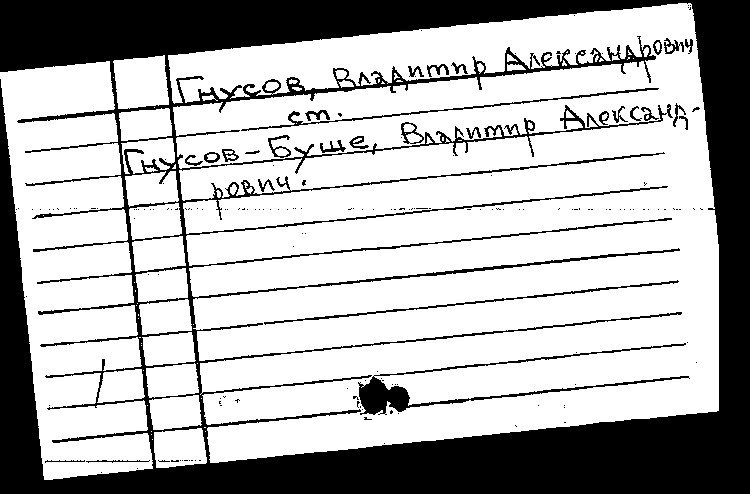 Гнусов, Владимир Александрович
ст.
Гнусов-Буше, Владимир Александ-
рович.